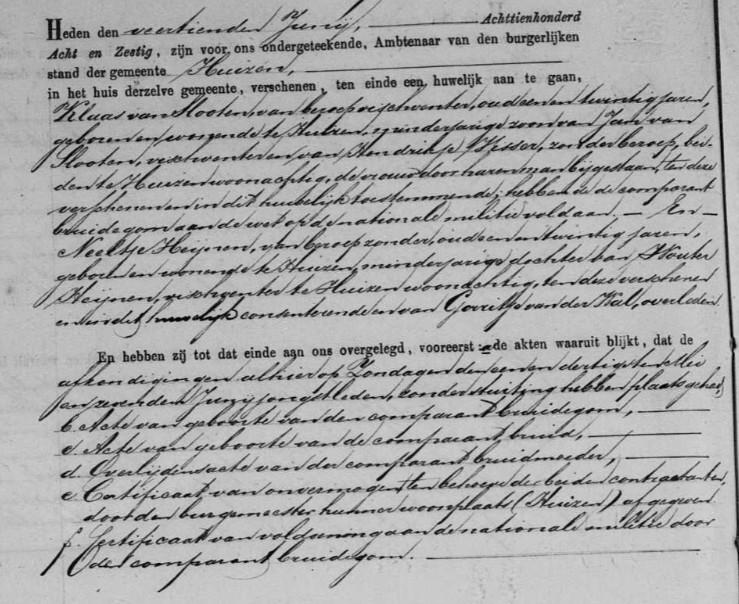 Heden den veertienden Junij, Achttienhonderd
Acht en Zestig, zijn voor ons ondergeteekende, Ambtenaar van den burgerlijken
stand der gemeente Huizen,
in het huis derzelve gemeente, verschenen, ten einde een huwelijk aan te gaan,
Klaas van Slooten, van beroep vischventer, oud een en twintig jaren,
geboren en wonende te Huizen, minderjarige zoon van Jan van
Slooten, vischventer en van Hendrikje Visser, zonder beroep, bei-
den te Huizen woonachtig, de vrouw door haren man bijgestaan, ten deze
verschenen en in dit huwelijk toestemmende; hebbende de comparant
bruidegom aan de wet op de nationale militie voldaan. – En –
Neeltje Heijnen, van beroep zonder, oud een en twintig jaren,
geboren en wonende te Huizen, minderjarige dochter van Wouter
Heijnen, vischventer te Huizen woonachtig, ten deze verschenen
en in dit huwelijk consenterende en van Gerritje van der Wal, overleden
En hebben zij tot dat einde aan ons overgelegd, vooreerst de akten waaruit blijkt, dat de
afkondigingen alhier op Zondagen den een en dertigsten Mei
en zevenden Junij jongstleden, zonder stuiting hebben plaats gehad,
b. Acte van geboorte van den comparant bruidegom,
c. Acte van geboorte van de comparant bruid,
d. Overlijdensacte van der comparant bruidmoeder,
e. Certificaat van onvermogen ten behoeve der beiden contractanten,
door den burgemeester hunner woonplaats (Huizen) afgegeven
f. Certificaat van voldoening aan de nationale militie door
den comparant bruidegom.